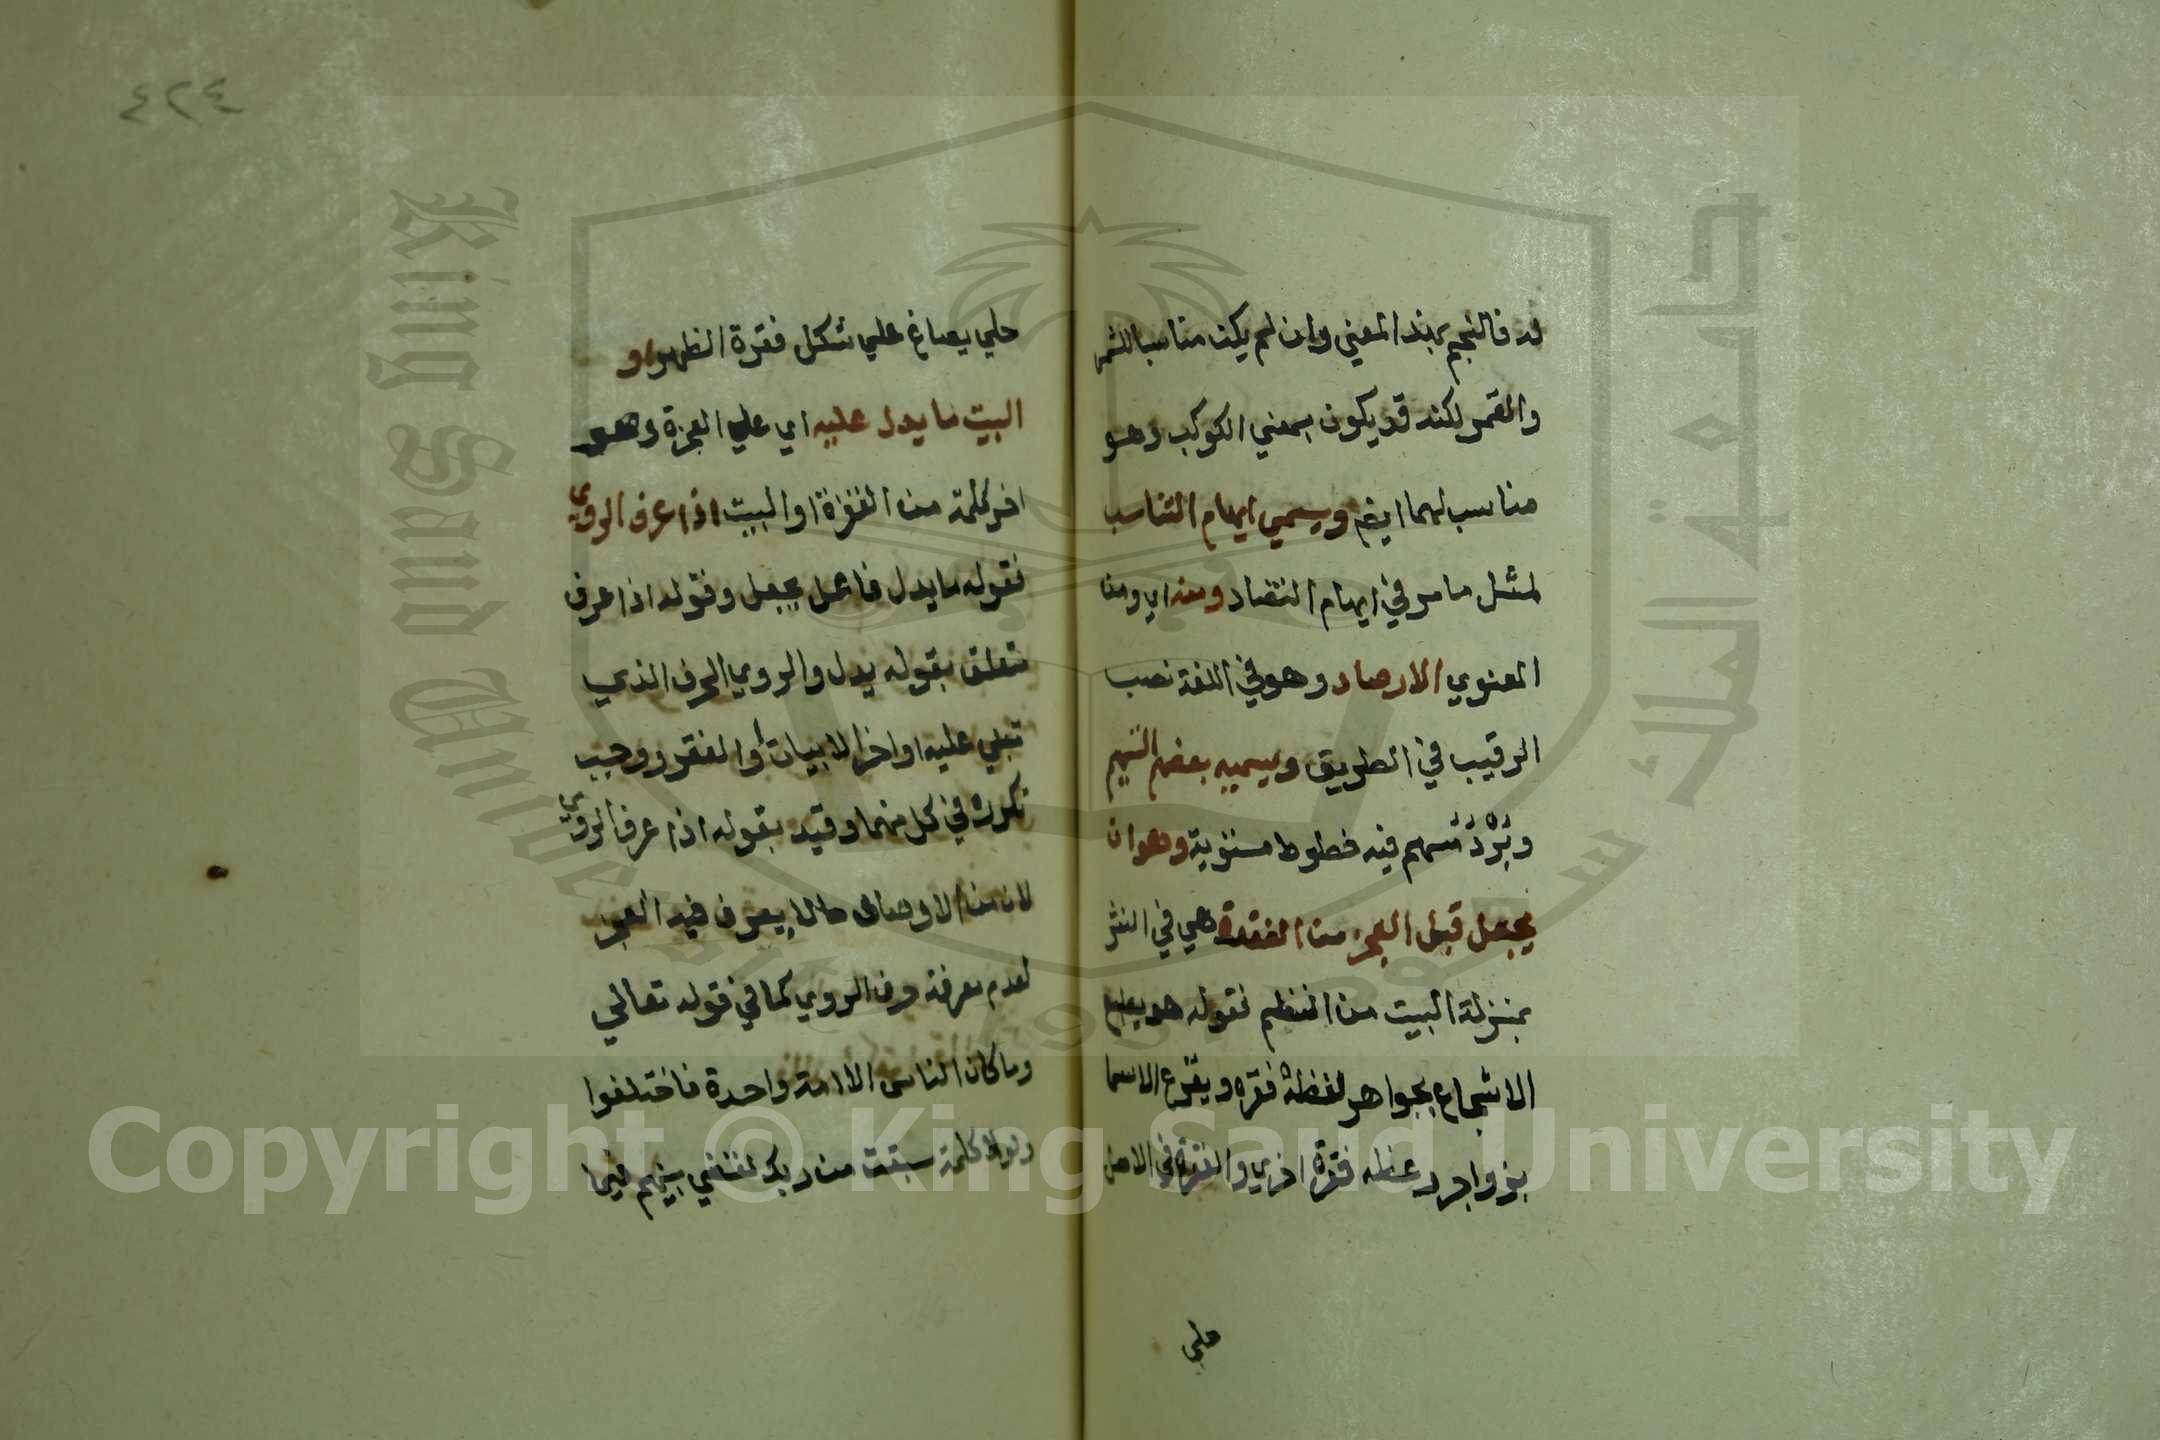 له فالنجم بهذا المعني وان لم يكن مناسبا للشمس
والقمر لكنه قد يكون بمعني الكوكب وهو
مناسب لهما ايضا ويسمي ايهام التناسب
لمثل ما مر في ايهام التضاد ومنه اي ومن
المعنوي الارصاد وهو في اللغة نصب
الرقيب في الطريق ويسميه بعضهم التسهيم
وبُرْدٌ مُسَهم فيه خطوط مستوية وهو ان
يجعل قبل العجز من الفقرة هي في النثر
بمنزلة البيت من النظم فقوله هو يطبع
الاسجاع بجواهر لفظه فقرة ويقرع الاسما
بزواجر وعظه فقرة اخري والفقرة في الاصل
حلي
٤٢٤
حلي يصاغ علي شكل فقرة الظهر او
البيت ما يدل عليه اي علي العجز وهو
اخر كلمة من الفقرة او البيت اذا عرف الروي
فقوله ما يدل فاعل يجعل وقوله اذا عرف
متعلق بقوله يدل والروي الحرف الذي
تبني عليه اواخر الابيات او الفقر ووجب
تكرره في كل منهما وقيد بقوله اذا عرف الروي
لان من الارصاد ما لا يعرف فيه العجز
لعدم معرفة حرف الروي كما في قوله تعالي
وما كان الناس الا امة واحدة فاختلفوا
ولولا كلمة سبقت من ربك لقضي بينهم فيما
King Saud University
جامعة الملك سعود
1957
Copyright © King Saud University